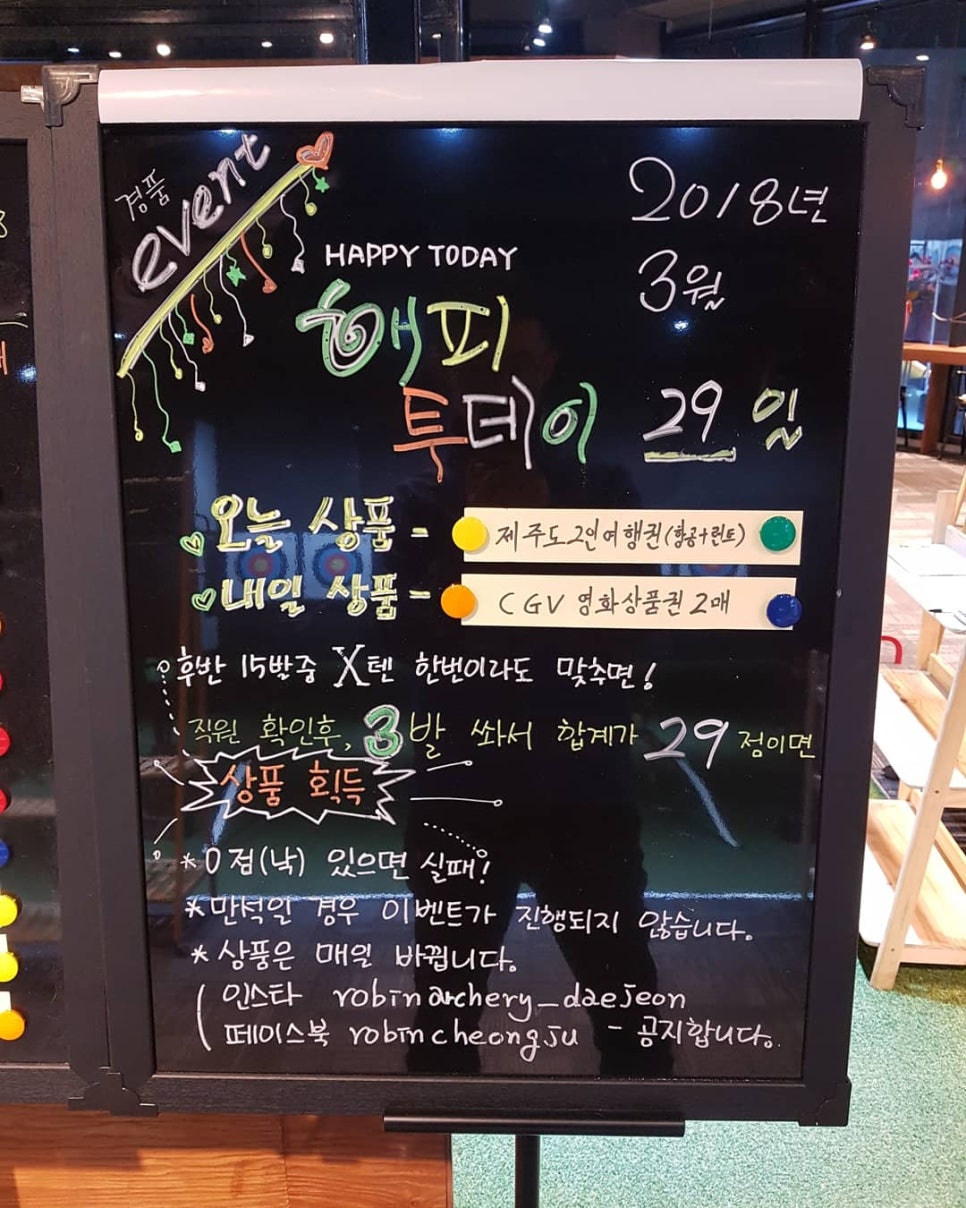 경품
event
2018년
HAPPY TODAY
3월
해피
투데이
29 일
오늘 상품 - 제주도2인여행권(항공+렌트)
내일 상품 - CGV 영화상품권 2매
후반 15발중 X텐 한번이라도 맞추면!
직원 확인후, 3발 쏴서 합계가 29점이면
상품 획득
*0점(낙) 있으면 실패!
*만석일 경우 이벤트가 진행되지 않습니다.
*상품은 매일 바뀝니다.
인스타 robinarchery_daejeon
페이스북 robincheongju - 공지합니다.